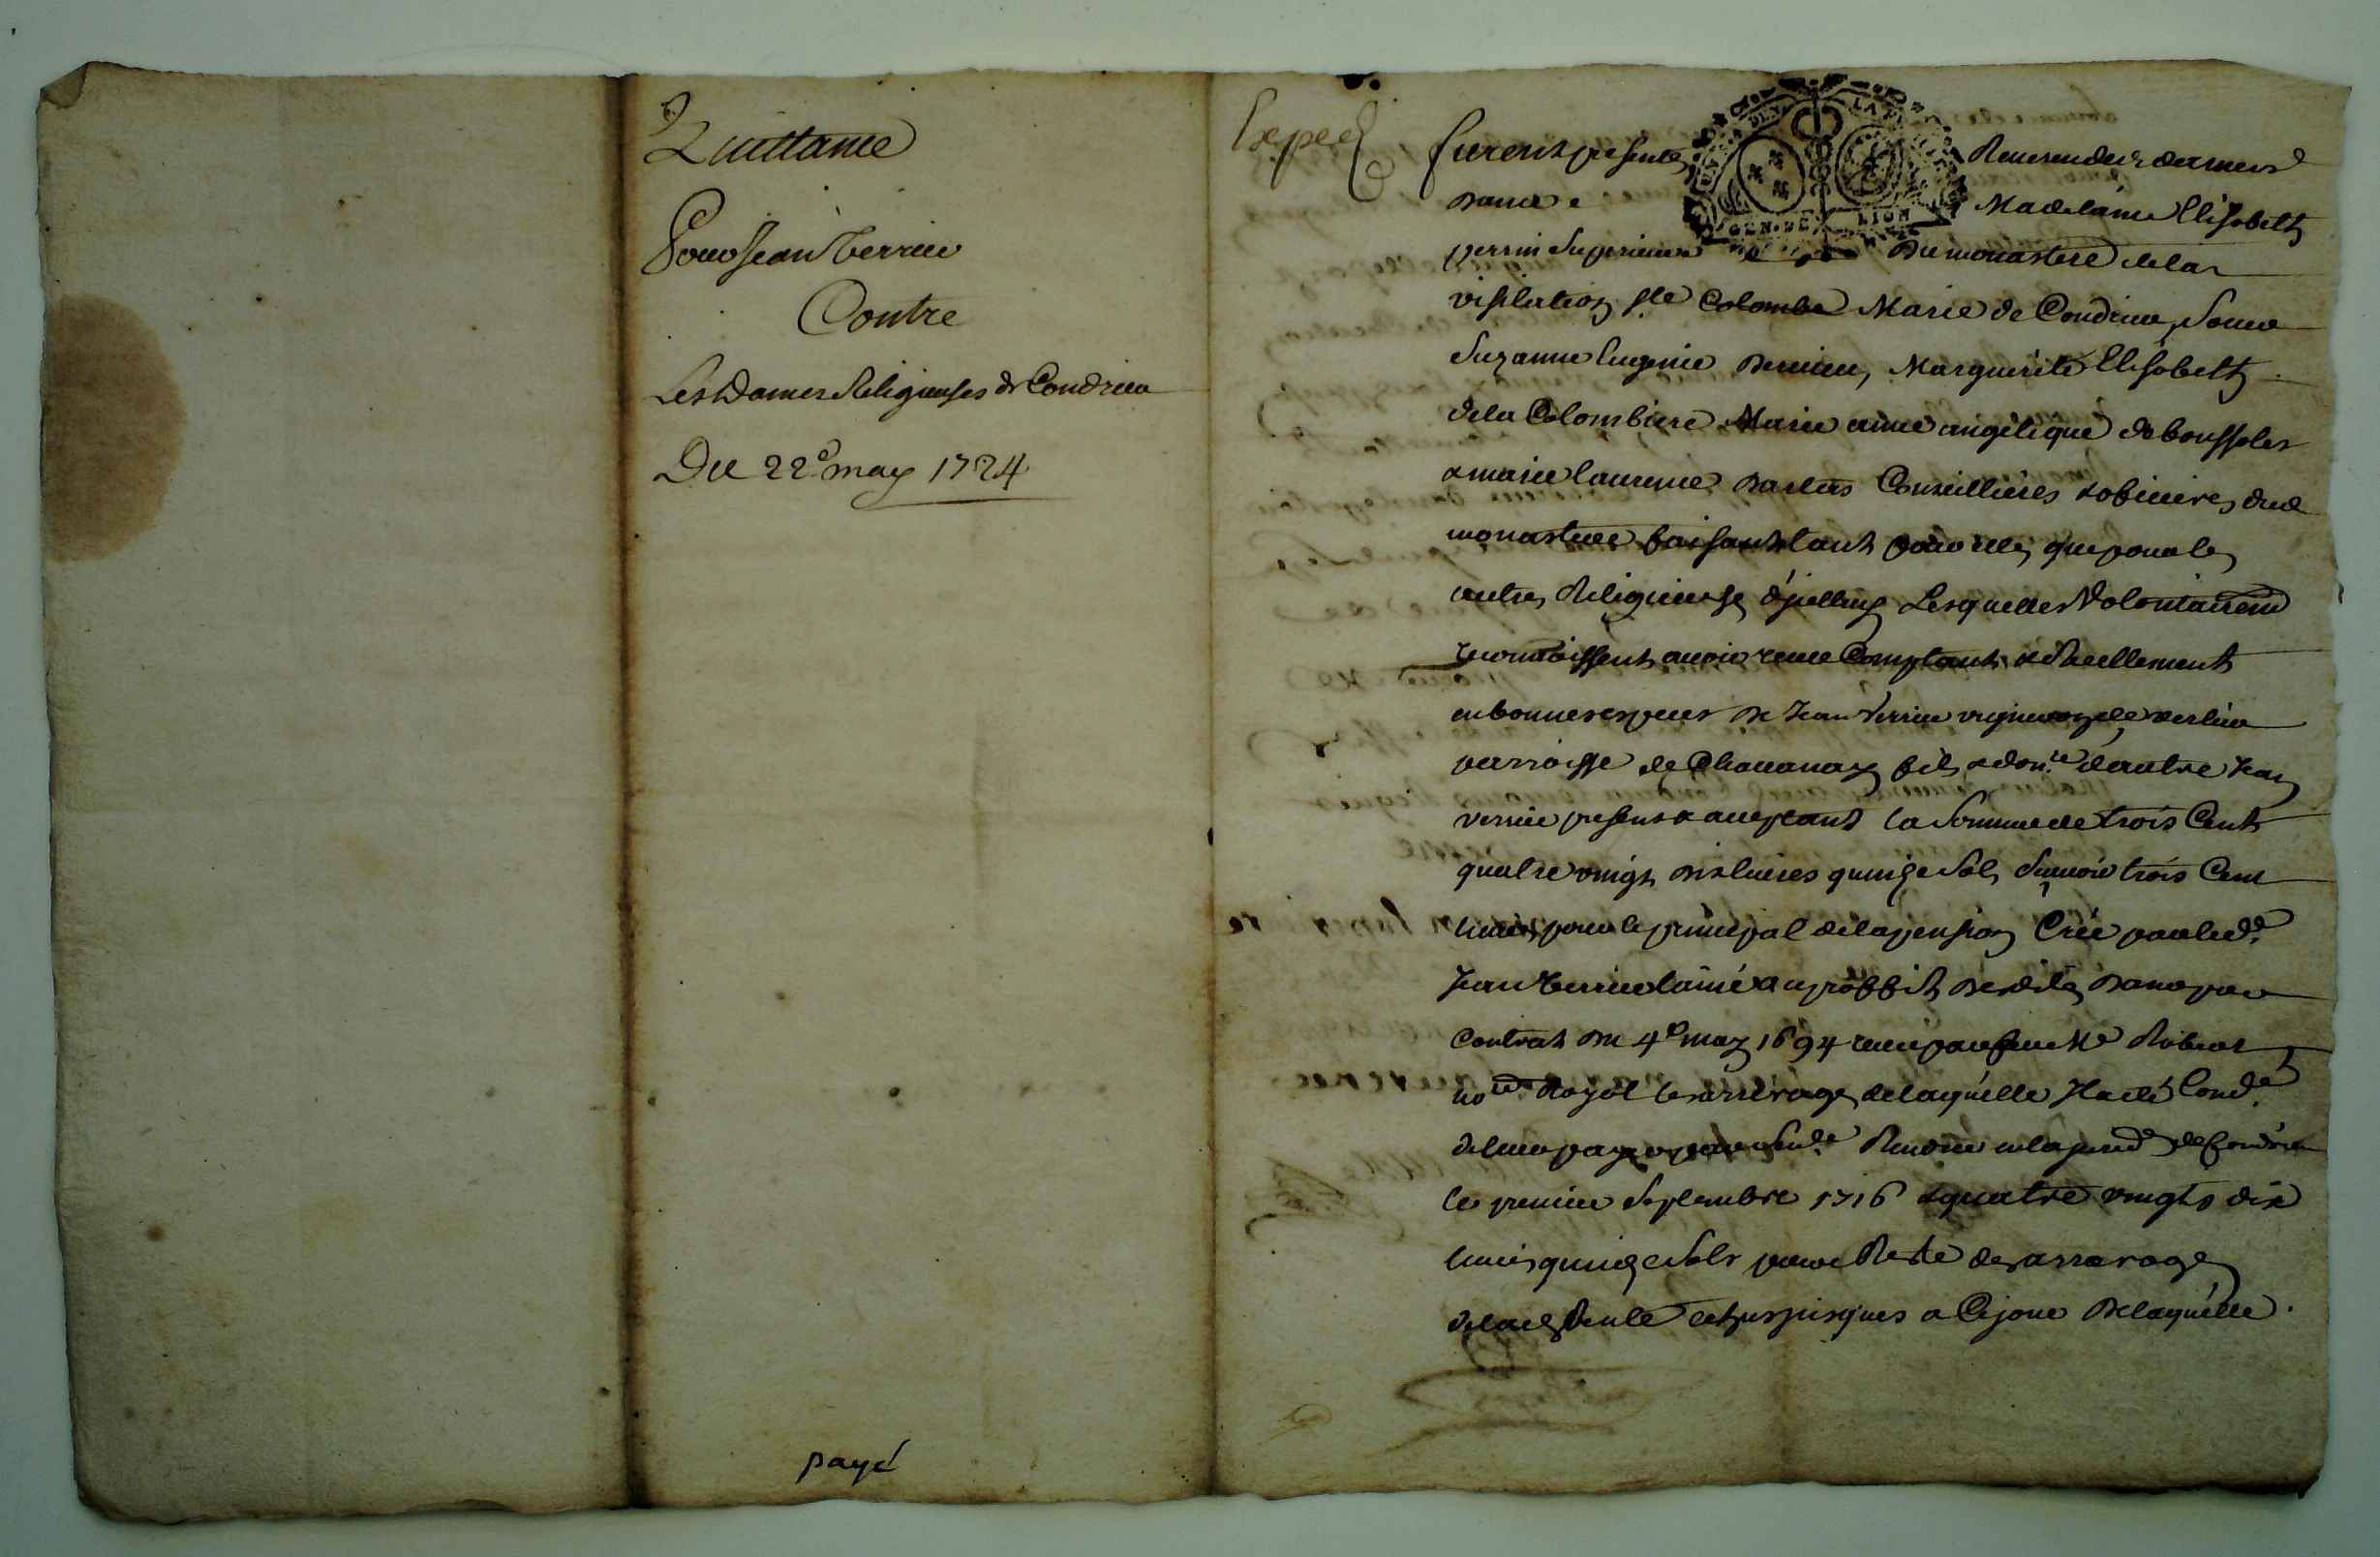 Quittance
Pour Jean Verrieu
Contre
Les Dames Religieuses de Condrieu
Du 22e may 1724
payé
Exped
furent presentes Reverendes dames
Dame Madelaine Elisobeth
perrin Superieure du monastere de la
visitation Ste Colombe Marie de Condrieu, Soeur
Suzanne Eugenie Marguerite Elisobeth
dela Colombiere Marie anne angelique de boussoles
& marie laurence Conseillieres dud
monastere faisant tant pour elles que pour les
autres Religieuses Lesquelles Volontairemt
reconnoissent avoir receu Comptant & Reellement
en bonnes especes de Jean Verrieu vigneron de verlieu
parroisse de Chavanay fils & donre d'autre Jean
verrieu present & acceptant la Somme de trois Cents
quatre vingt dix livres quinze Sols Scavoir trois Cent
livres pour le principal de la pension Créé par led.
Jean Verrieu lainé au proffit desdites Dames par
Contrat du 4e may 1694 receu par feu Me
nore Royal les arrerages de laquelle Il a eté Cond.
de leur payer par Sende Rendue en la jurid de Condrieu
le premier Septembre 1716 & quatre vingts dix
livres quinze Sols pour Reste des arrerages
de lad Rente jusques a Ce jour De laquelle
GEN. DE LION